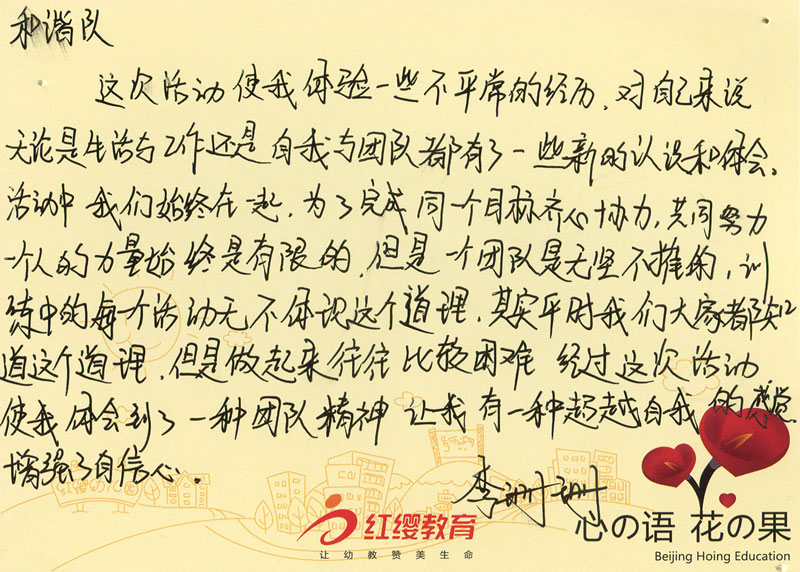 和谐队
这次活动使我体验一些不平常的经历，对自己来说
无论是生活与工作还是自我与团队都有了一些新的认识和体会。
活动中我们始终在一起，为了完成同一个目标齐心协力，共同努力
一个人的力量始终是有限的，但是一个团队是无坚不摧的，训
练中的每个活动无不体现这个道理，其实平时我们大家都知
道这个道理，但是做起来往往比较困难 经过这次活动
使我体会到了一种团队精神 让我有一种超越自我的感觉
增强了自信心。
李珊珊
红缨教育
让幼教赞美生命
心の语 花の果
Beijing Hoing Education